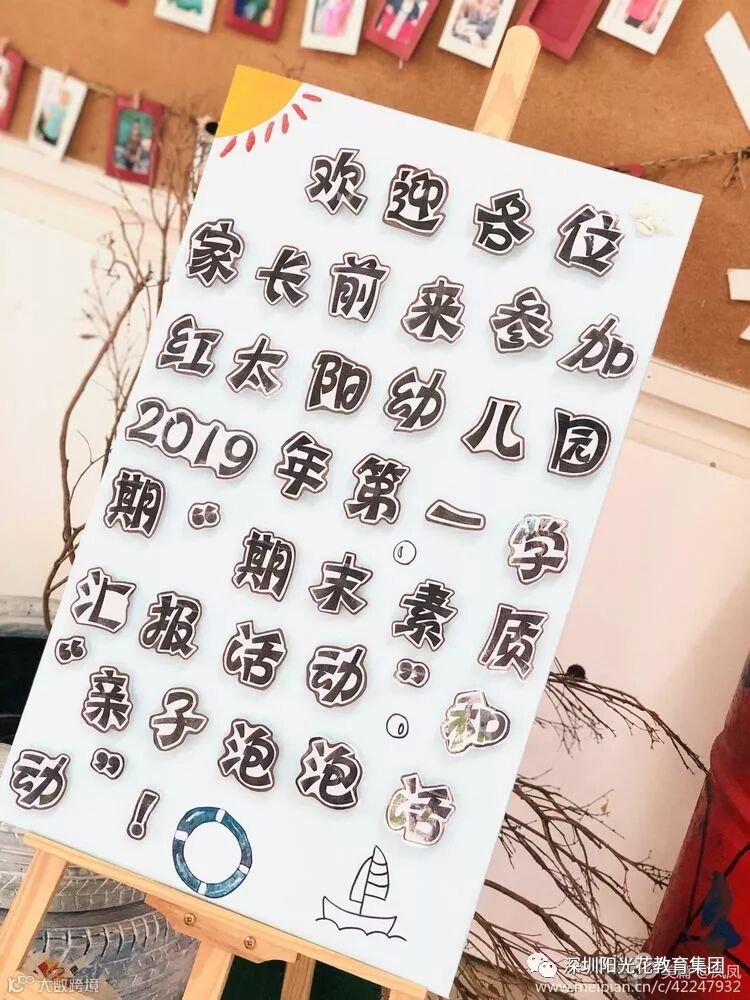 欢迎各位
家长前来参加
红太阳幼儿园
2019年第一学
期“期末素质
汇报活动”和
“亲子泡泡活
动”！
深圳阳光花教育集团
www.meipian.cn/c/42247932
大数跨境